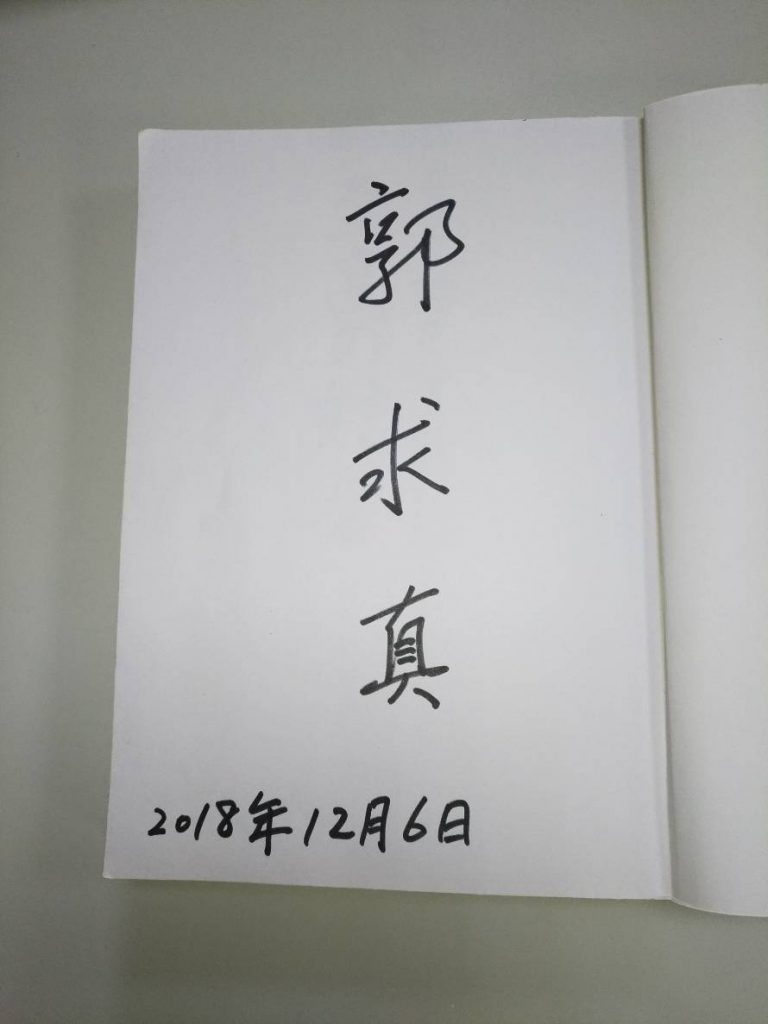 郭求真
2018年12月6日